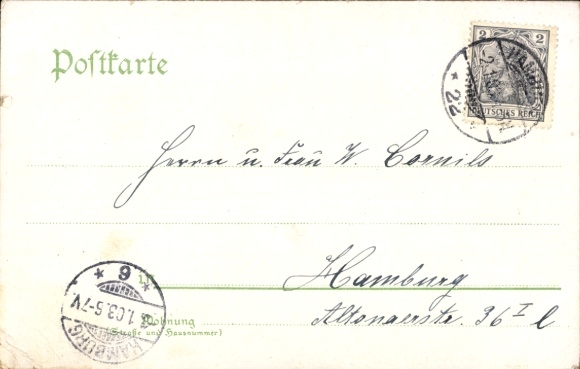 Postkarte
2 2
DEUTSCHES REICH
HAMBURG
* 22
Herrn u. Frau W. Cornils
in
Hamburg
Wohnung
(Straße und Hausnummer)
Altonaerstr. 36 I l
* 6 *
1.03.5-7V.
HAMBURG